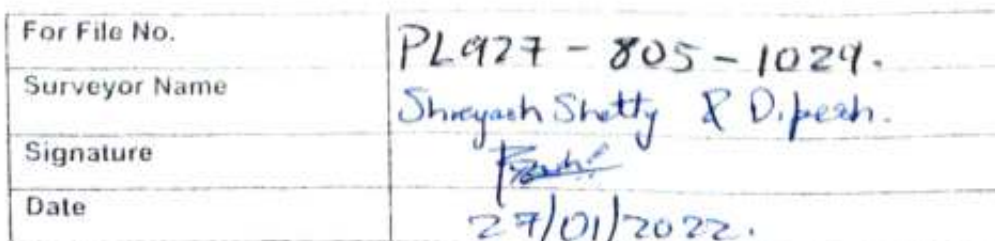 For File No. PL927 - 805 - 1029.
Surveyor Name Shreyash Shetty & Dipesh.
Signature
Date 27/01/2022.